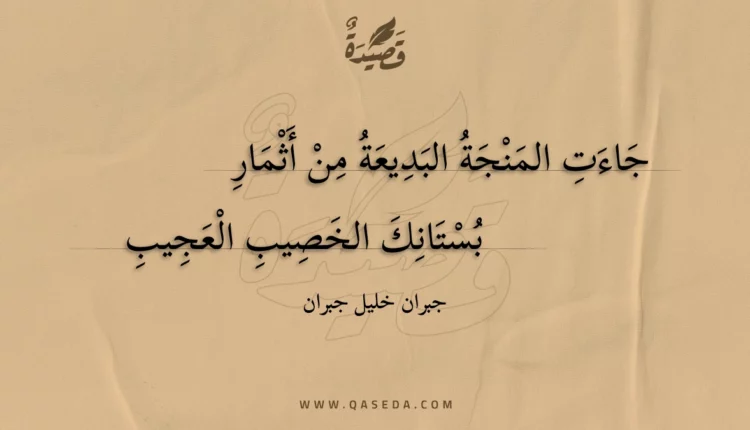 قَصِيدَةٌ
جَاءَتِ المَنْجَةُ البَدِيعَةُ مِنْ أَثْمَارِ
بُسْتَانِكَ الخَصِيبِ الْعَجِيبِ
جبران خليل جبران
WWW.QASEDA.COM